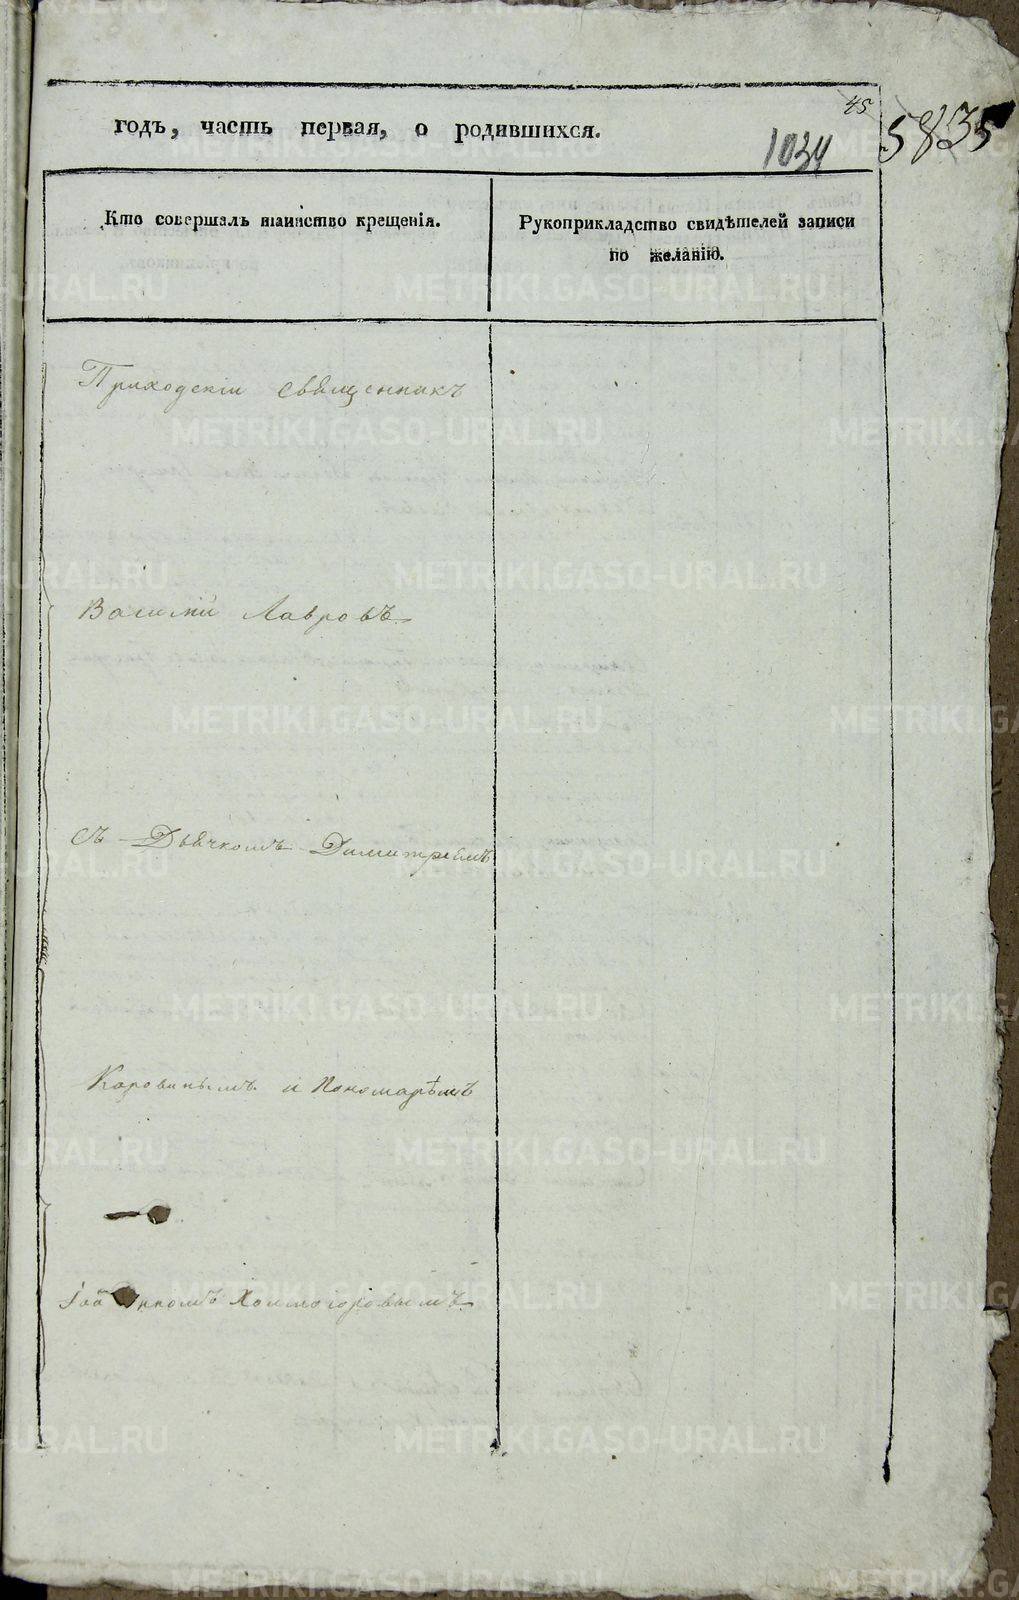 45
годъ, часть первая, о родившихся.
1034
5835
Кто совершалъ таинство крещенія.
Рукоприкладство свидѣтелей записи
по желанію.
Приходскій священникъ
Василій Лавровъ
съ Дьячкомъ Димитріемъ
Коровинымъ и Пономарѣмъ
Іоанномъ Холмогоровымъ
METRIKI.GASO-URAL.RU